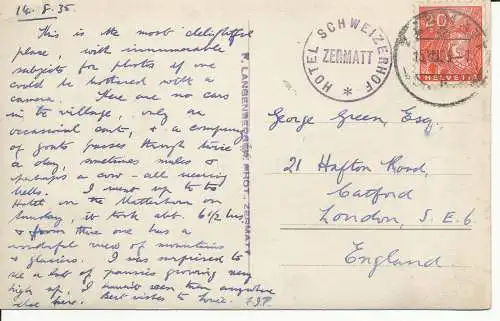 14.8.35.
This is the most delightful
place, with innumerable
subjects for photos if one
could be bothered with a
camera. There are no cars
in the village, only an
occasional cart, & a company
of goats passes through twice
a day, sometimes mules &
perhaps a cow - all wearing
bells. I went up to the
Hotel on the Matterhorn on
Sunday, it took abt. 6 1/2 hrs.
& from there one has a
wonderful view of mountains
& glaciers. I was surprised to
see a lot of pansies growing very
high up, I haven't seen them anywhere
else here. Best wishes to
F.J.P.
HOTEL SCHWEIZERHOF
ZERMATT
*
ZERMATT
20
HELVETIA
George Green, Esq.
21 Hafton Road,
Catford
London, S.E.6.
England.
PHOT. ZERMATT